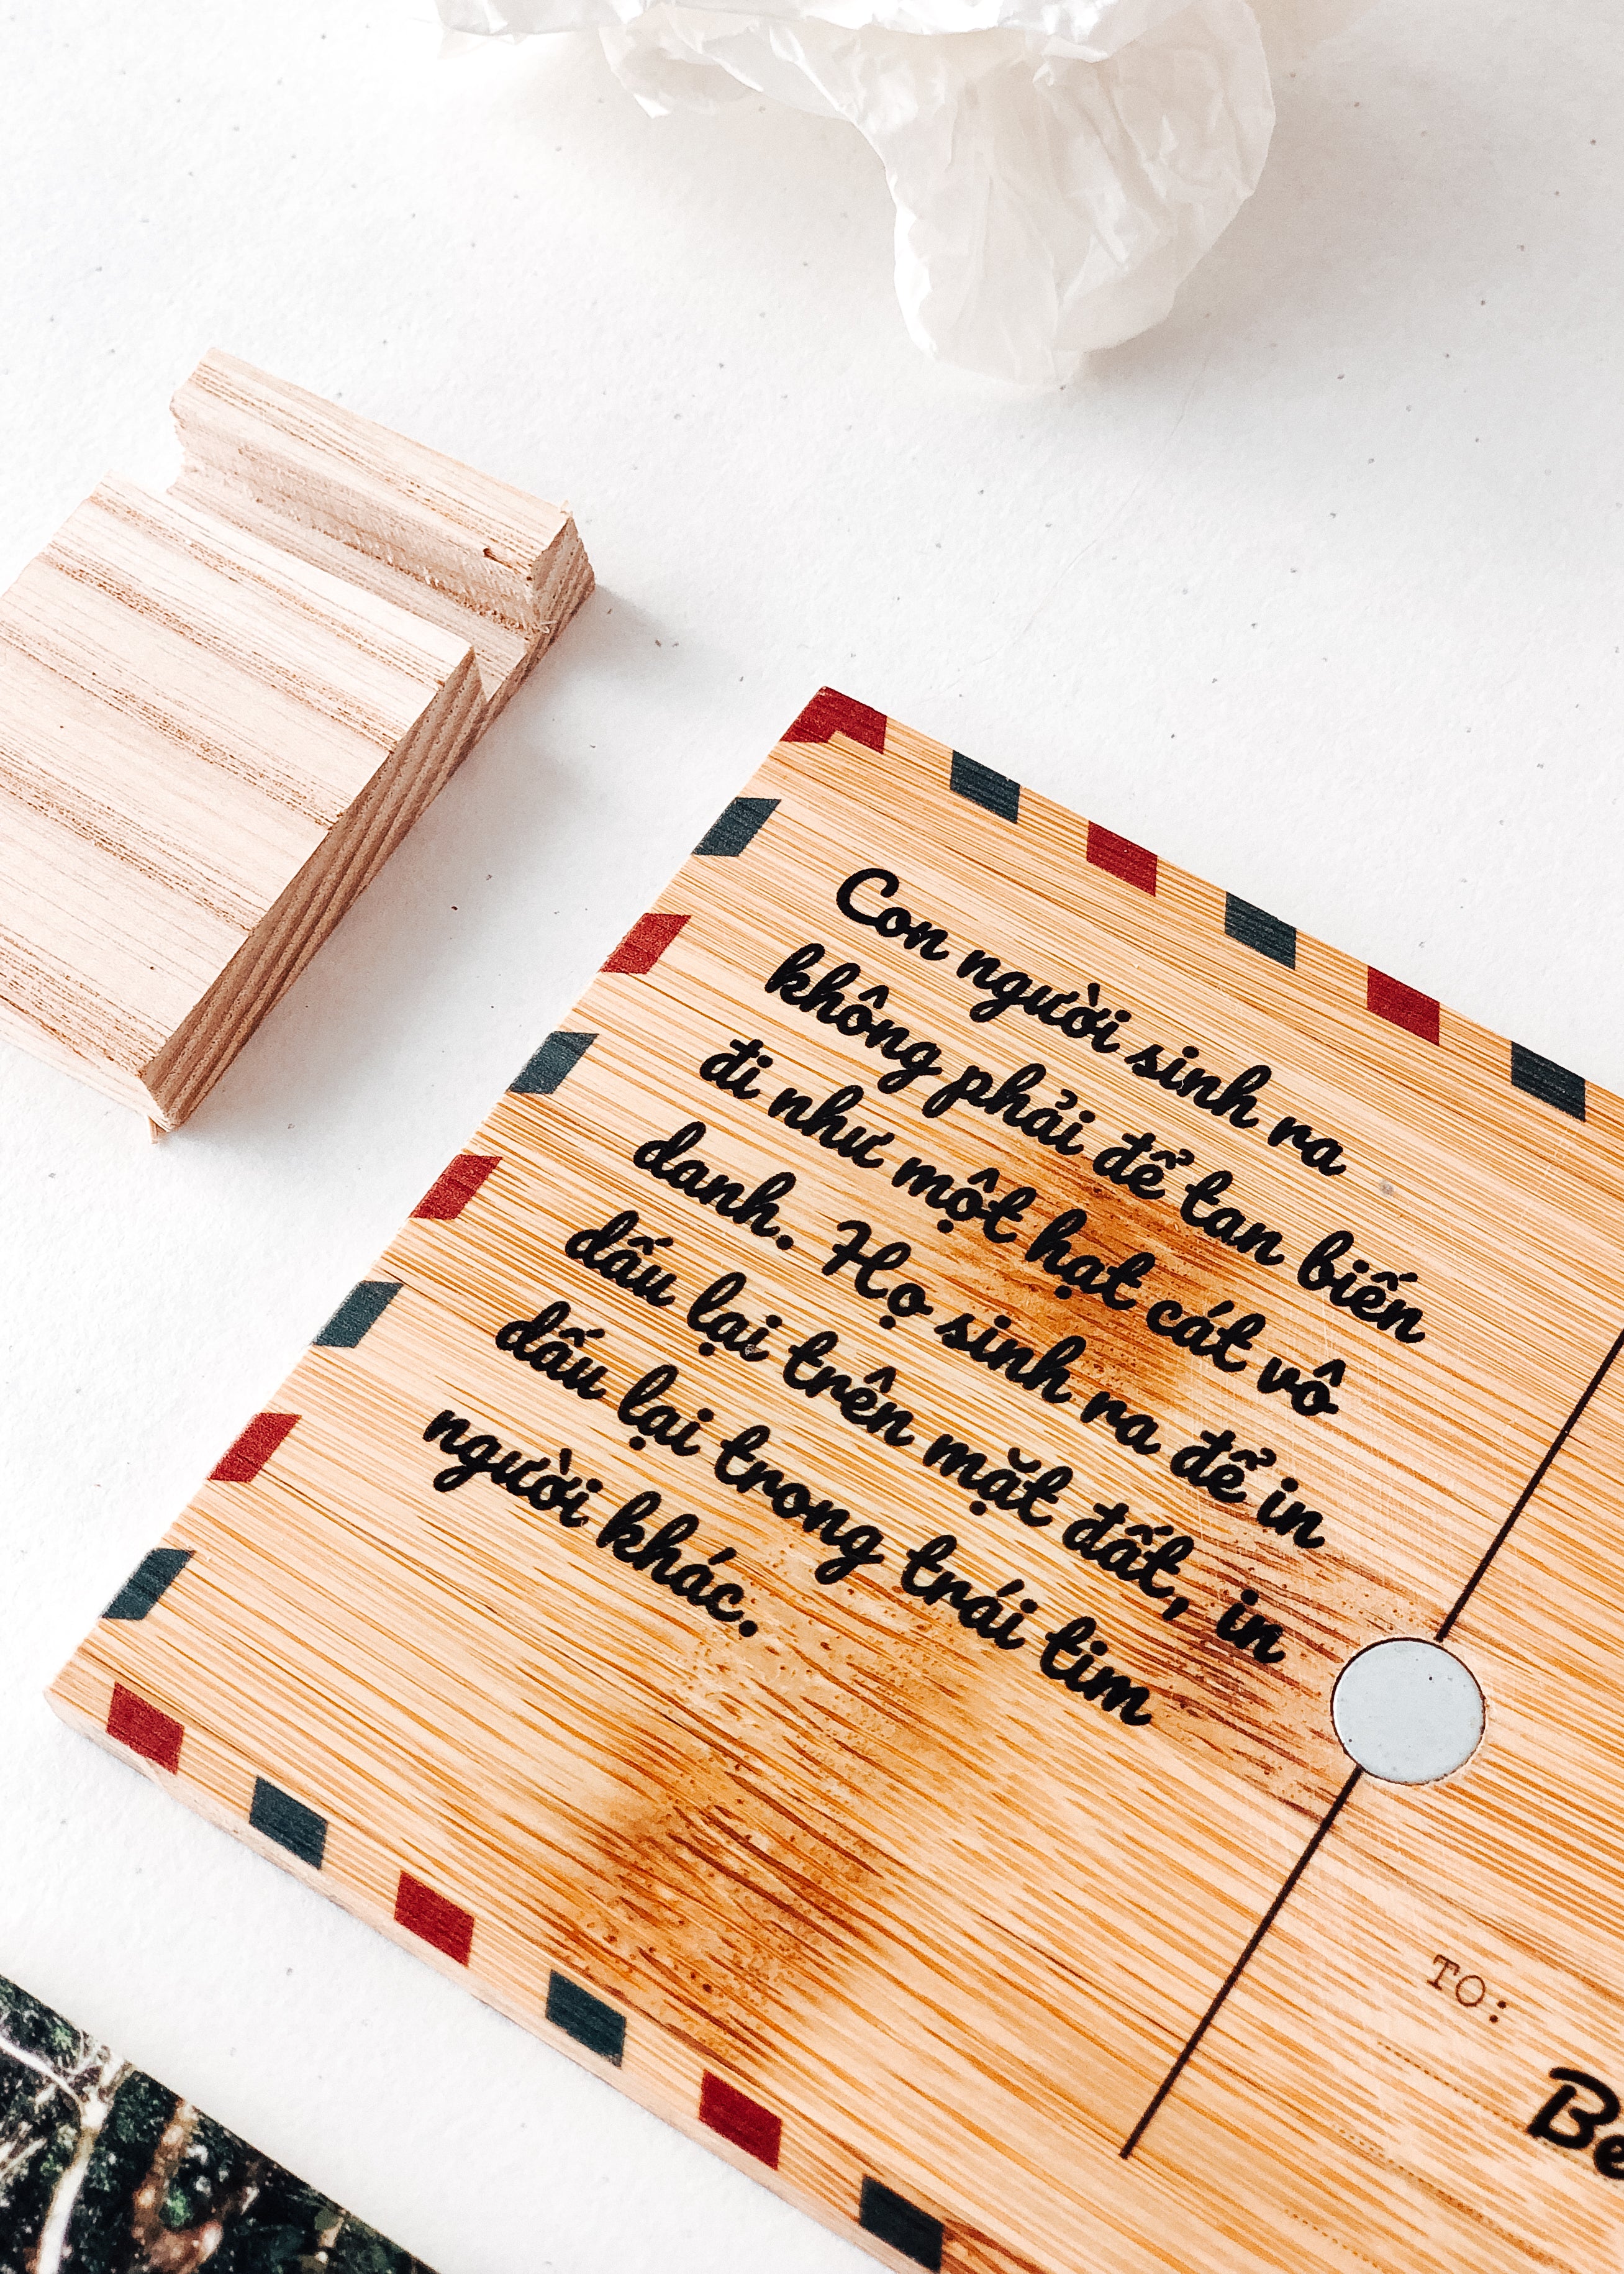 Con người sinh ra
không phải để tan biến
đi như một hạt cát vô
danh. Họ sinh ra để in
dấu lại trên mặt đất, in
dấu lại trong trái tim
người khác.
TO:
Be